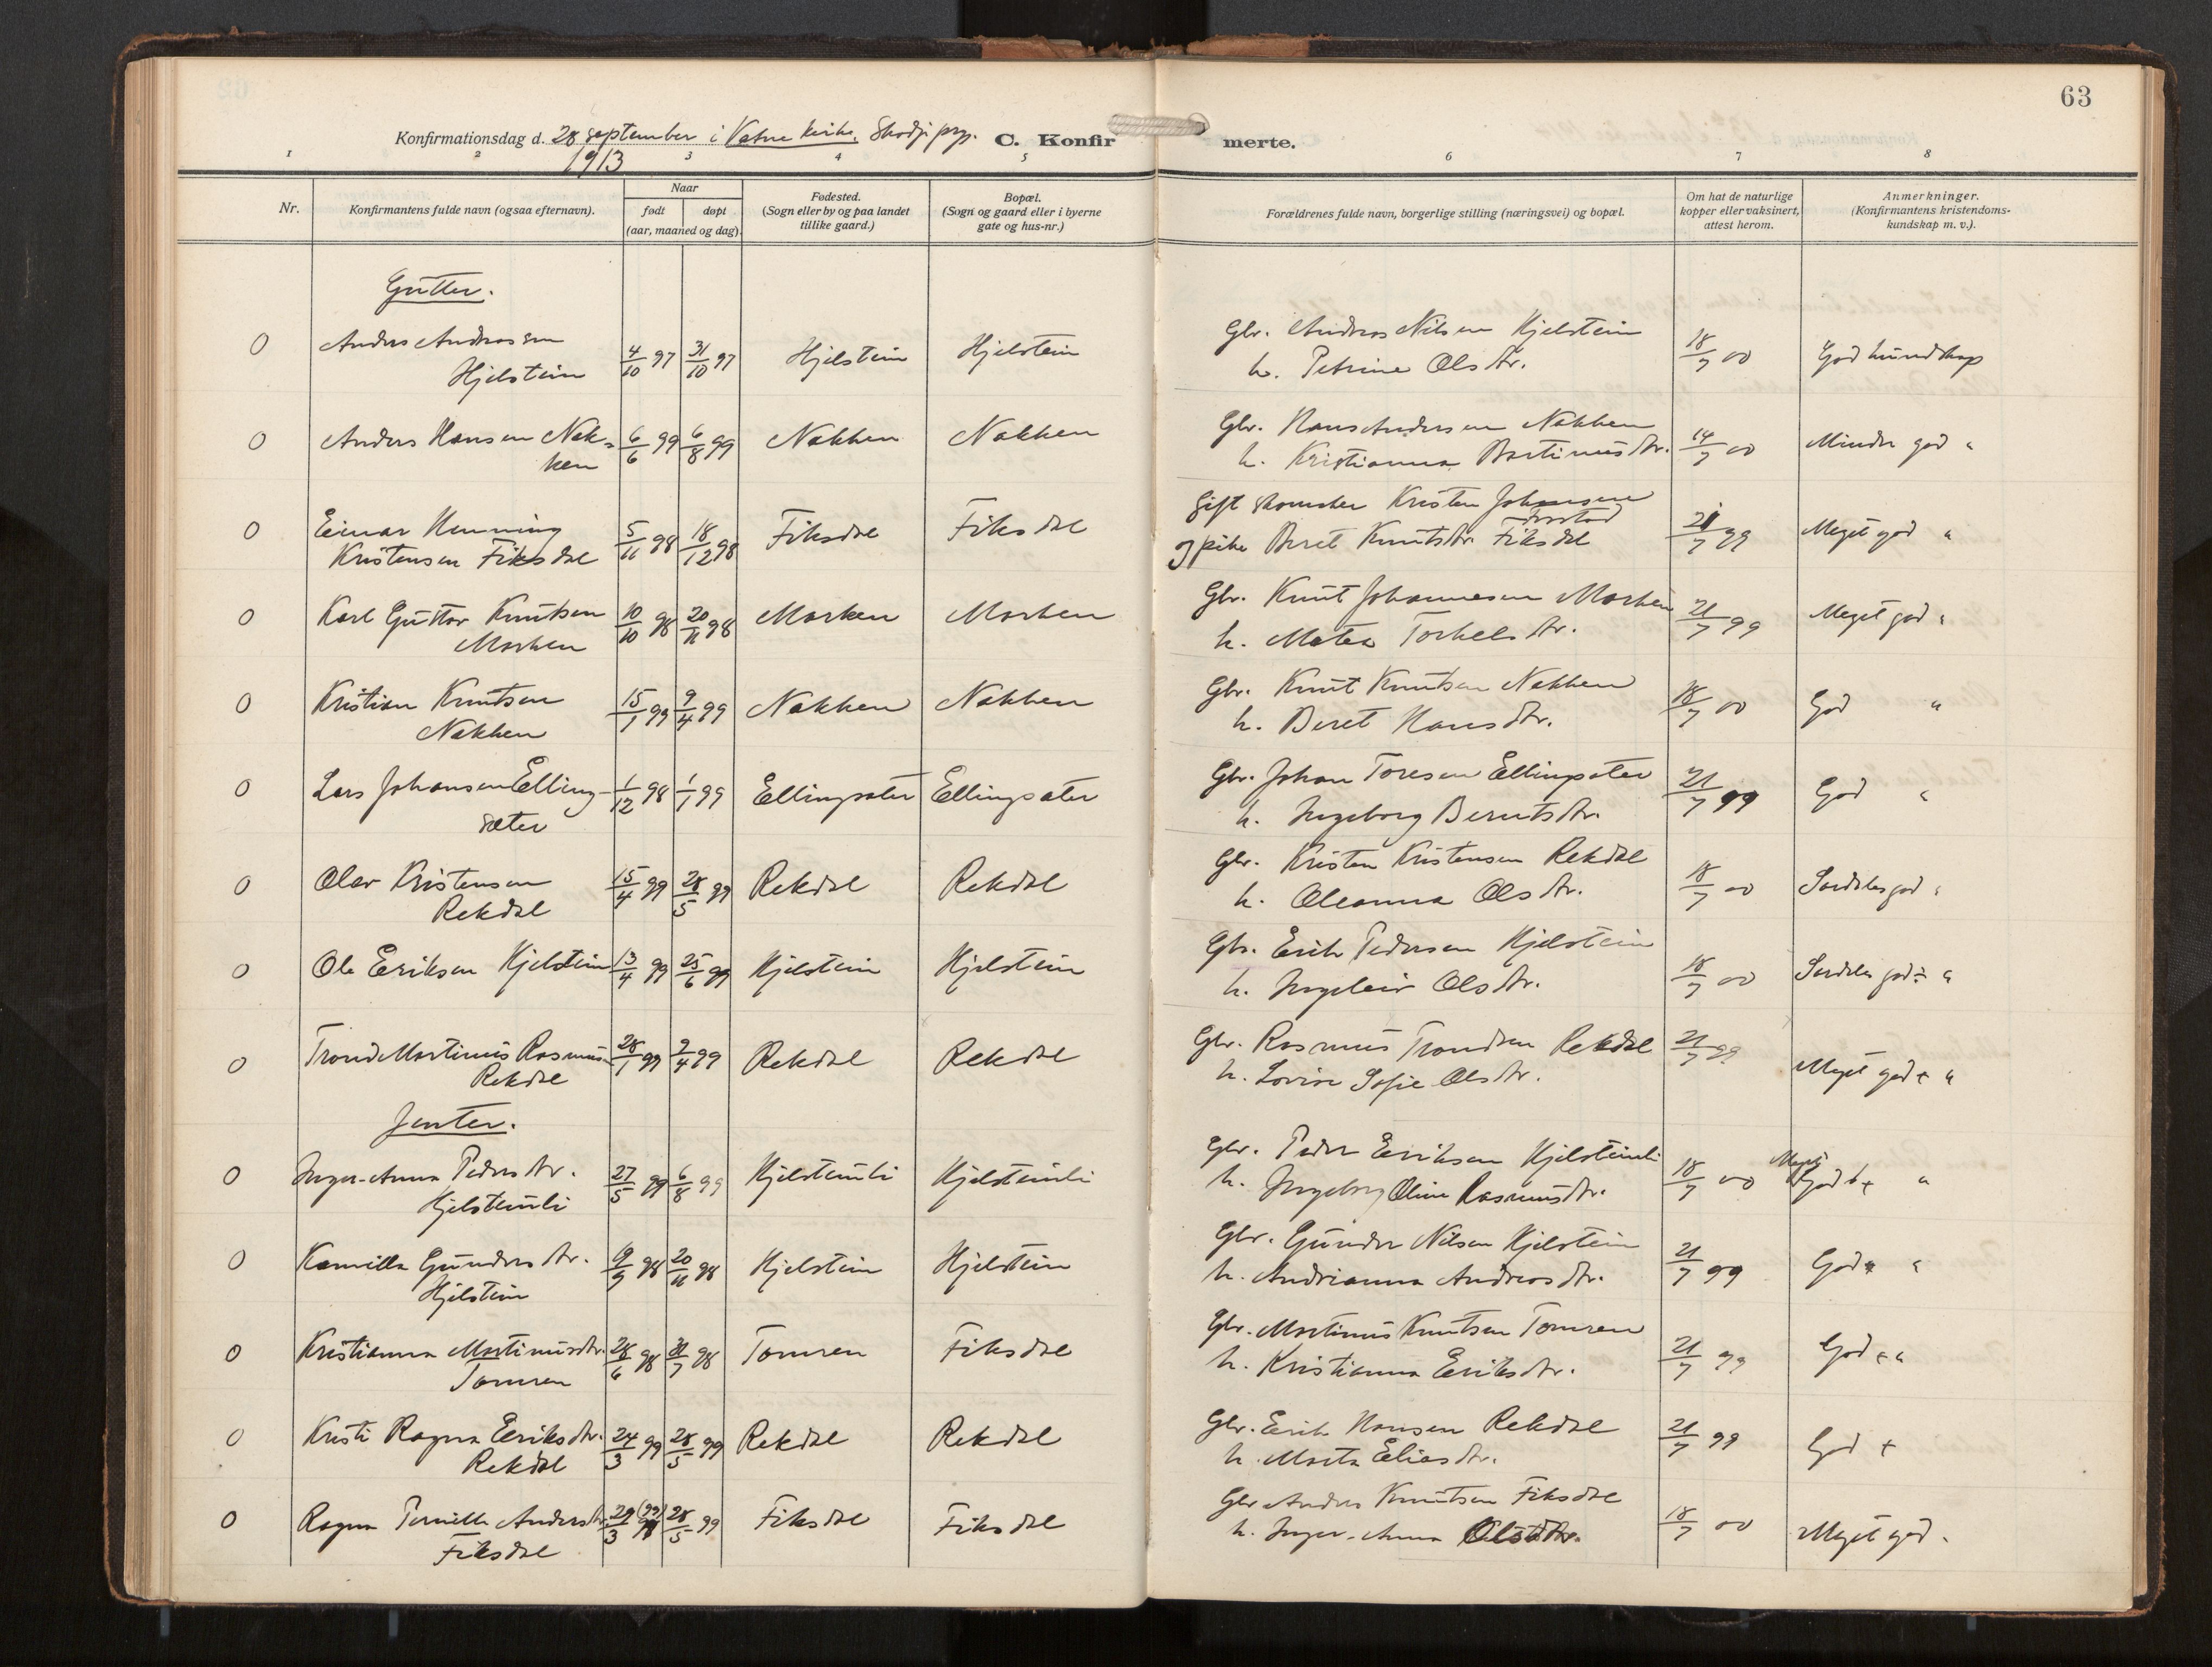 63
Konfirmationsdag d. 28 september i Vatne kirke, Skodje prgj. C. Konfirmerte.
1913
1 2 3 4 5 6 7 8
Nr.
Konfirmantens fulde navn (ogsaa efternavn).
Naar
født døpt
(aar, maaned og dag).
Fødested.
(Sogn eller by og paa landet
tillike gaard.)
Bopæl.
(Sogn og gaard eller i byerne
gate og hus-nr.)
Forældrenes fulde navn, borgerlige stilling (næringsvei) og bopæl.
Om hat de naturlige
kopper eller vaksinert,
attest herom.
Anmerkninger.
(Konfirmantens kristendoms-
kundskap m. v.).
Gutter.
0 Anders Andreassen 4/10 97 31/10 97 Hjelstein Hjelstein Gbr. Andreas Nilsen Hjelstein 18/7 00 God kundskap
Hjelstein h. Petrine Olsdtr.
0 Anders Hansen Nak- 6/6 99 6/8 99 Nakken Nakken Gbr. Hans Andersen Nakken 14/7 00 Mindre god "
ken h. Kristianna Bastinusdtr.
0 Einar Henning 5/11 98 18/12 98 Fiksdal Fiksdal Gift skomaker Kristen Johansen 21/7 99 Meget god "
Kristensen Fiksdal og pike Beret Knutsdtr. Fiksdal
0 Karl Gustav Knutsen 10/10 98 20/11 98 Morken Morken Gbr. Knut Johannesen Morken 21/7 99 Meget god "
Morken h. Matea Torkelsdtr.
0 Kristian Knutsen 15/1 99 9/4 99 Nakken Nakken Gbr. Knut Knutsen Nakken 18/7 00 God "
Nakken h. Beret Hansdtr.
0 Lars Johansen Elling- 1/12 98 1/1 99 Ellingsæter Ellingsæter Gbr. Johan Toresen Ellingsæter 21/7 99 God "
sæter h. Ingeborg Berntsdtr.
0 Olav Kristensen 15/4 99 28/5 99 Rekdal Rekdal Gbr. Kristen Kristensen Rekdal 18/7 00 Særdeles god "
Rekdal h. Oleanna Olsdtr.
0 Ole Eriksen Hjelstein 13/4 99 25/6 99 Hjelstein Hjelstein Gbr. Erik Pedersen Hjelstein 18/7 00 Særdeles god ÷ "
h. Ingeleiv Olsdtr.
0 Trond Martinus Rasmussen 28/1 99 9/4 99 Rekdal Rekdal Gbr. Rasmus Trondsen Rekdal 21/7 99 Meget god + "
Rekdal h. Lovise Sofie Olsdtr.
Jenter.
0 Inger-Anna Pedersdtr. 27/5 99 6/8 99 Hjelsteinli Hjelsteinli Gbr. Peder Eriksen Hjelsteinli 18/7 00 Meget god "
Hjelsteinli h. Ingeborg Oline Rasmusdtr.
0 Kamilla Gundersdtr. 19/9 98 20/11 98 Hjelstein Hjelstein Gbr. Gunder Nilsen Hjelstein 21/7 99 God "
Hjelstein h. Andrianna Andreasdtr.
0 Kristianna Martinusdtr. 28/6 98 31/7 98 Tomren Fiksdal Gbr. Martinus Knutsen Tomren 21/7 99 God + "
Tomren h. Kristianna Eriksdtr.
0 Kristi Ragna Eriksdtr. 24/3 99 28/5 99 Rekdal Rekdal Gbr. Erik Hansen Rekdal 21/7 99 God +
Rekdal h. Marta Eliasdtr.
0 Ragna Pernille Andersdtr. 29/3 (99) 98 28/5 99 Fiksdal Fiksdal Gbr Anders Knutsen Fiksdal 18/7 00 Meget god "
Fiksdal h. Inger-Anna Olsdtr.